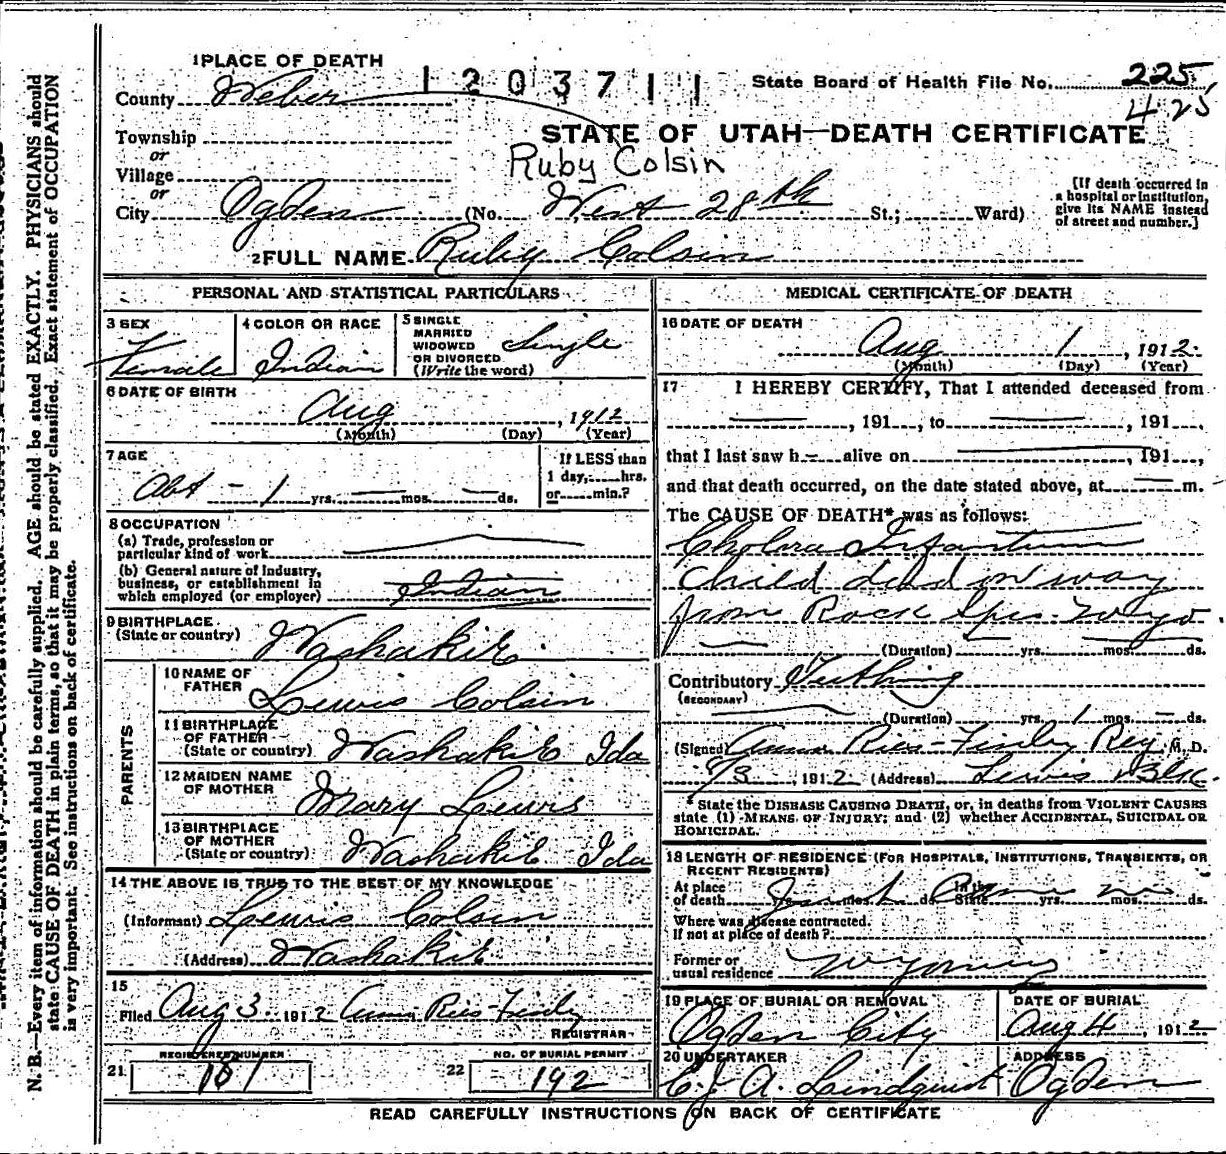 1 PLACE OF DEATH
1203711
State Board of Health File No. 225
425
County Weber
STATE OF UTAH—DEATH CERTIFICATE
Township
or
Ruby Colsin
Village
or
City Ogden (No. West 28th St.; Ward)
[If death occurred in
a hospital or institution,
give its NAME instead
of street and number.]
2 FULL NAME Ruby Colsin
PERSONAL AND STATISTICAL PARTICULARS
3 SEX
Female
4 COLOR OR RACE
Indian
5 SINGLE
MARRIED
WIDOWED
OR DIVORCED
(Write the word)
Single
6 DATE OF BIRTH
Aug , 1912
(Month) (Day) (Year)
7 AGE
Abt - 1 yrs. mos. ds.
If LESS than
1 day, hrs.
or min.?
8 OCCUPATION
(a) Trade, profession or
particular kind of work
(b) General nature of Industry,
business, or establishment in
which employed (or employer) Indian
9 BIRTHPLACE
(State or country) Washakie
PARENTS
10 NAME OF
FATHER Lewis Colsin
11 BIRTHPLACE
OF FATHER
(State or country) Washakie Ida
12 MAIDEN NAME
OF MOTHER Mary Lewis
13 BIRTHPLACE
OF MOTHER
(State or country) Washakie Ida
14 THE ABOVE IS TRUE TO THE BEST OF MY KNOWLEDGE
(Informant) Lewis Colsin
(Address) Washakie
15
Filed Aug 3 1912 Anna Ries-Finley
REGISTRAR
REGISTERED NUMBER
21 161
NO. OF BURIAL PERMIT
22 192
MEDICAL CERTIFICATE OF DEATH
16 DATE OF DEATH
Aug 1 , 1912
(Month) (Day) (Year)
17 I HEREBY CERTIFY, That I attended deceased from
, 191 , to , 191 ,
that I last saw h alive on , 191 ,
and that death occurred, on the date stated above, at m.
The CAUSE OF DEATH* was as follows:
Cholara Infantum
Child died on way
from Rock Spis. Wyo.
(Duration) yrs. mos. ds.
Contributory Teething
(SECONDARY)
(Duration) yrs. 1 mos. ds.
(Signed) Anna Ries-Finley Reg M. D.
8/3 , 1912 (Address) Lewis Blk.
* State the DISEASE CAUSING DEATH, or, in deaths from VIOLENT CAUSES
state (1) MEANS OF INJURY; and (2) whether ACCIDENTAL, SUICIDAL OR
HOMICIDAL.
18 LENGTH OF RESIDENCE (FOR HOSPITALS, INSTITUTIONS, TRANSIENTS, OR
RECENT RESIDENTS)
At place
of death yrs. mos. ds. In the State yrs. mos. ds.
Where was disease contracted
If not at place of death?
Former or
usual residence Wyoming
19 PLACE OF BURIAL OR REMOVAL
Ogden City
DATE OF BURIAL
Aug 4 , 1912
20 UNDERTAKER
C. J. A. Lindquist
ADDRESS
Ogden
READ CAREFULLY INSTRUCTIONS ON BACK OF CERTIFICATE
N. B.—Every item of information should be carefully supplied. AGE should be stated EXACTLY. PHYSICIANS should
state CAUSE OF DEATH in plain terms, so that it may be properly classified. Exact statement of OCCUPATION
is very important. See instructions on back of certificate.